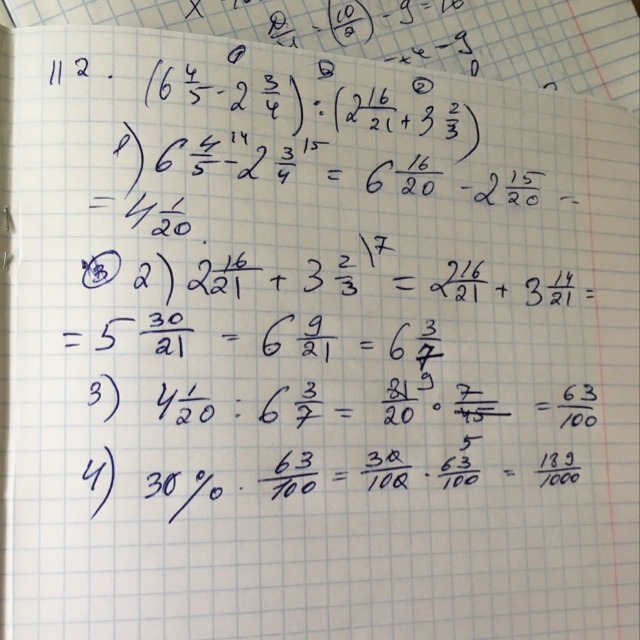 112. (6 4/5 - 2 3/4) : (2 16/21 + 3 2/3)
1) 6 4/5 - 2 3/4 = 6 16/20 - 2 15/20 =
= 4 1/20.
2) 2 16/21 + 3 2/3 \7 = 2 16/21 + 3 14/21 =
= 5 30/21 = 6 9/21 = 6 3/7
3) 4 1/20 : 6 3/7 = 81/20 · 7/45 = 63/100
4) 30% · 63/100 = 30/100 · 63/100 = 189/1000